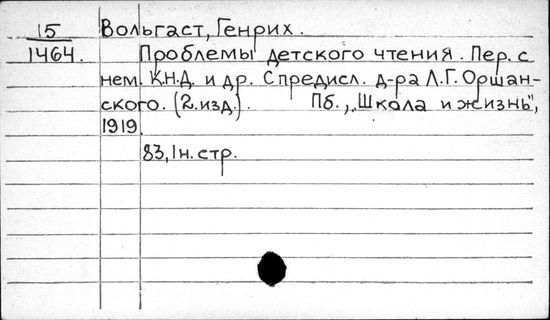 15 Вольгаст, Генрих.
1464. Проблемы детского чтения. Пер. с
нем. К.Н.Д. и др. С предисл. д-ра Л.Г. Оршан-
ского. (2.изд.). Пб., „Школа и жизнь",
1919.
83,1н. стр.